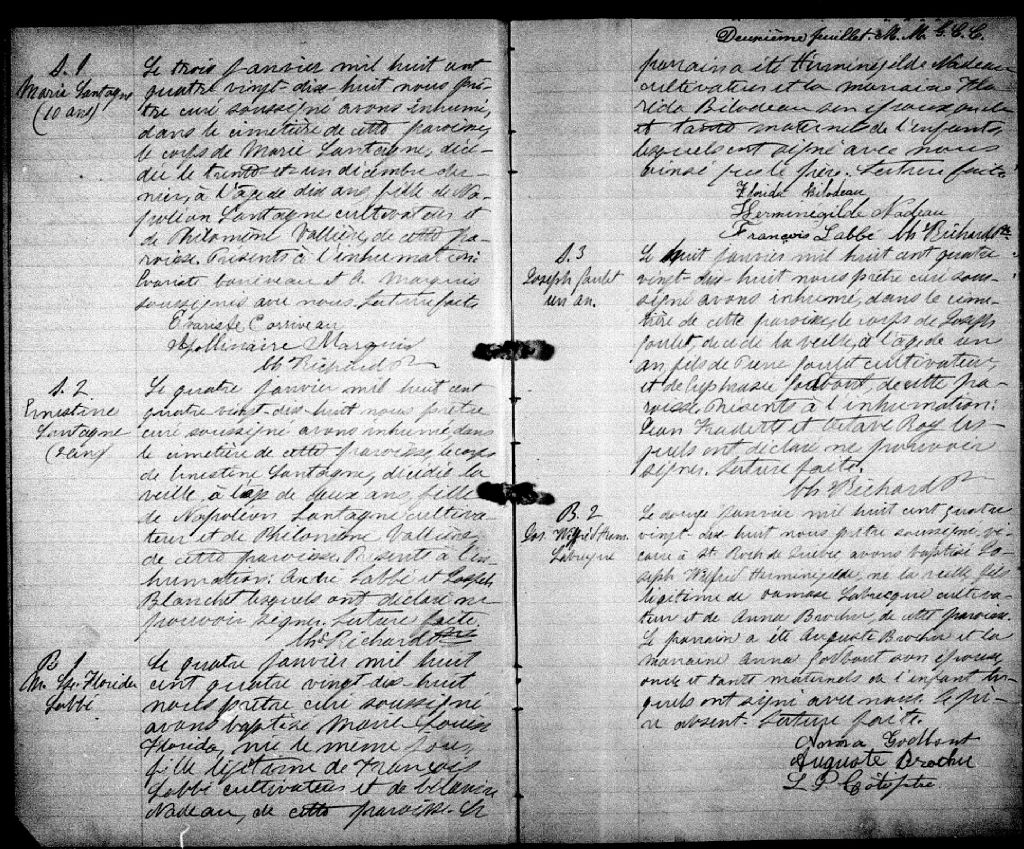 S. 1
Marie Lantagne
(10 ans)
Le trois Janvier mil huit cent
quatre vingt-dix-huit nous prê-
tre curé soussigné avons inhumé,
dans le cimetière de cette paroisse,
le corps de Marie Lantagne, décé-
dée le trente et un décembre der-
nier, à l'âge de dix ans, fille de Na-
poléon Lantagne cultivateur et
de Philomène Vallière, de cette pa-
roisse. Présents à l'inhumation:
Evariste et A. Marquis
soussignés avec nous. Lecture faite.
Evariste Corriveau
Apollinaire Marquis
Ch Richard Ptre
S. 2
Ernestine
Lantagne
(2 ans)
Le quatre Janvier mil huit cent
quatre vingt-dix-huit nous prêtre
curé soussigné avons inhumé, dans
le cimetière de cette paroisse, le corps
de Ernestine Lantagne, décédée la
veille, à l'age de deux ans, fille
de Napoléon Lantagne cultiva-
teur et de Philomène Vallière,
de cette paroisse. Présents à l'in-
humation: André Labbé et Joseph
Blanchet lesquels ont déclaré ne
pouvoir signer. Lecture faite.
Chs Richard Ptre
B. 1
M. Ls. Florida
Labbé
Le quatre Janvier mil huit
cent quatre vingt-dix-huit
nous prêtre curé soussigné
avons baptisé Marie Louise
Florida, née le même jour,
fille légitime de François
Labbé cultivateur et de Célanire
Nadeau, de cette paroisse. Le
Deuxième feuillet. M. M. G. C. C.
parrain a été Herménégilde Nadeau
cultivateur et la marraine Flo-
rida Bilodeau son épouse, oncle
et tante maternels de l'enfant,
lesquels ont signé avec nous
ainsi que le père. Lecture faite
Florida Bilodeau
Herménégilde Nadeau
François Labbé Ch Richard Ptre
S. 3
Joseph Goulet
un an.
Le huit Janvier mil huit cent quatre
vingt-dix-huit nous prêtre curé sous-
signé avons inhumé, dans le cime-
tière de cette paroisse, le corps de Joseph
Goulet décédé la veille, à l'age de un
an, fils de Pierre Goulet cultivateur,
et de Euphasie Godbout, de cette pa-
roisse. Présents à l'inhumation:
Jean et Octave Roy les-
quels ont déclaré ne pouvoir
signer. Lecture faite.
Ch Richard Ptre
B. 2
Jos. Wilfrid Herm.
Labrecque
Le douze Janvier mil huit cent quatre
vingt-dix-huit nous prêtre soussigné vi-
caire à St Roch de Québec avons baptisé Jo-
seph Wilfrid Herménégilde, né la veille fils
légitime de Damase Labrecque cultiva-
teur et de Anna Brochu, de cette paroisse.
Le parrain a été Auguste Brochu et la
marraine Anna Godbout son épouse,
oncle et tante maternels de l'enfant les-
quels ont signé avec nous. Le pè-
re absent. Lecture faite.
Anna Godbout
Auguste Brochu
L P Côté ptre